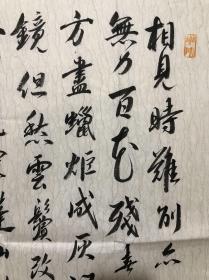 相見時難別亦
無力百花殘春
方盡蠟炬成灰淚
鏡但愁雲鬢改
蓬山